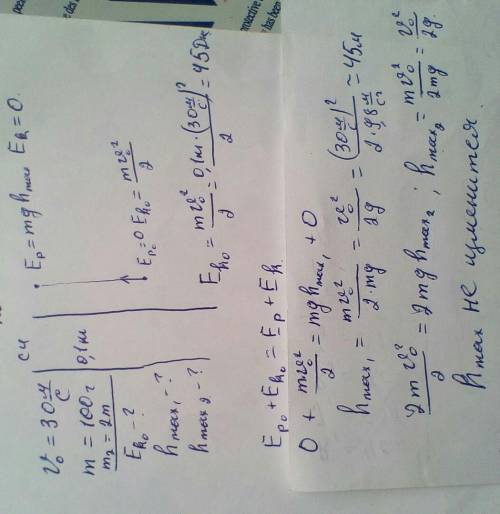 v₀ = 30 м/с
m = 100 г
m₂ = 2m
E_k₀ - ?
h_max₁ - ?
h_max₂ - ?
СИ
0,1 кг
E_p = mgh_max E_k = 0.
E_p₀ = 0 E_k₀ = mv₀²/2
E_k₀ = mv₀²/2 = 0,1 кг · (30 м/с)²/2 = 45 Дж
E_p₀ + E_k₀ = E_p + E_k
0 + mv₀²/2 = mgh_max₁ + 0
h_max₁ = mv₀²/2·mg = v₀²/2g = (30 м/с)²/2·9,8 м/с² ≈ 45 м
2mv₀²/2 = 2mgh_max₂ ; h_max₂ = mv₀²/2mg = v₀²/2g.
h max не изменится